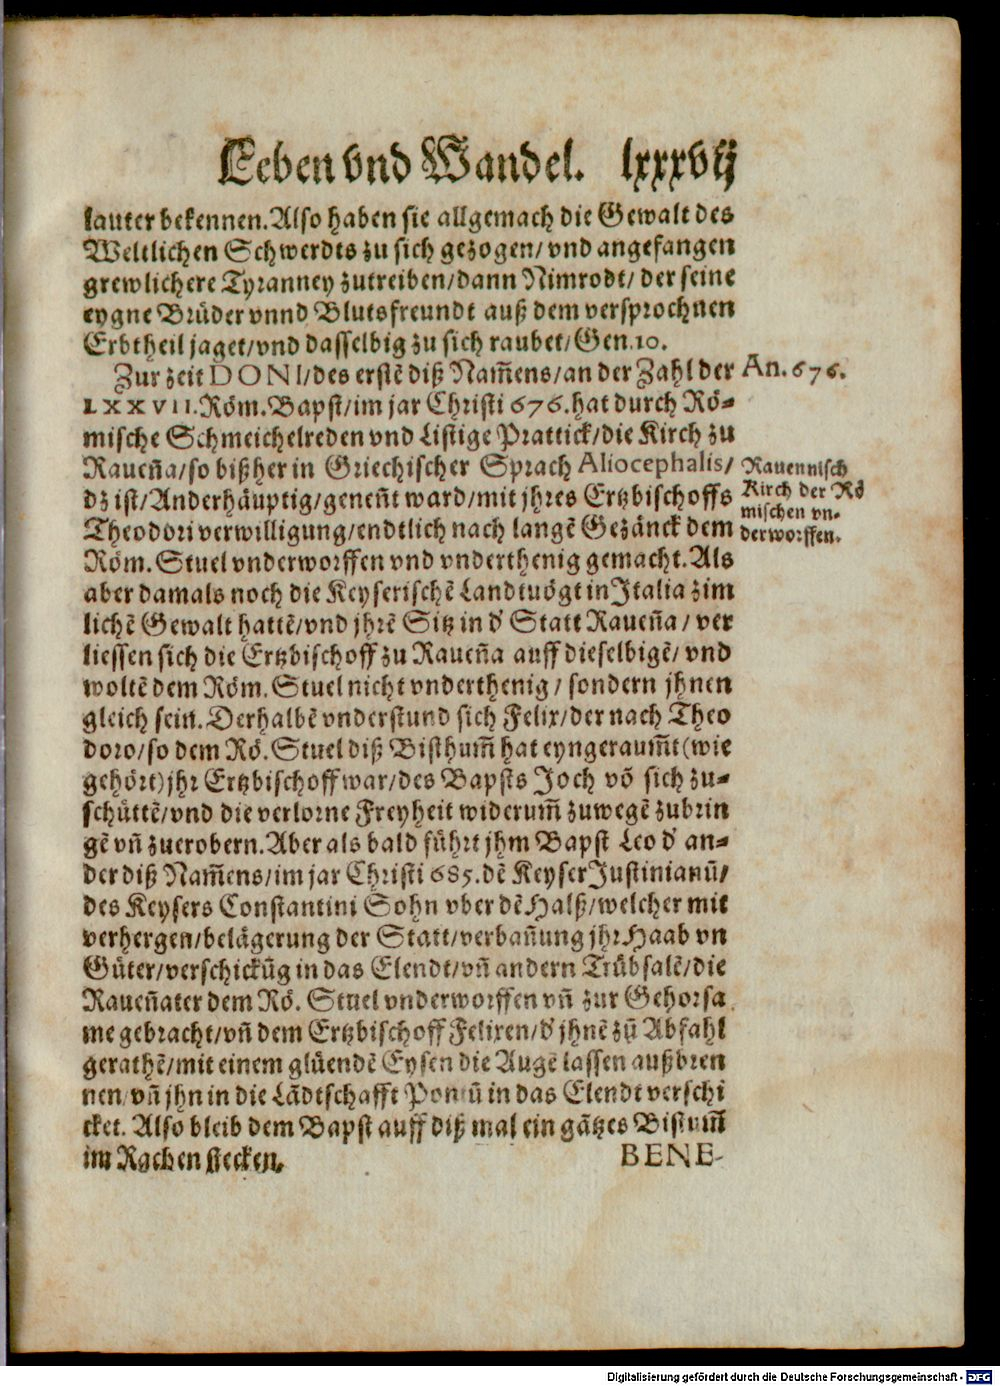 Leben vnd Wandel. lxxxvij
lauter bekennen. Also haben sie allgemach die Gewalt des
Weltlichen Schwerdts zu sich gezogen/ vnd angefangen
grewlichere Tyranney zutreiben/ dann Nimrodt/ der seine
eygne Brüder vnnd Blutsfreundt auß dem versprochnen
Erbtheil jaget/ vnd dasselbig zu sich raubet/ Gen. 10.
Zur zeit DONI/ des erstē diß Nam̃ens/ an der Zahl der
An. 676.
LXXVII. Röm. Bapst/ im jar Christi 676. hat durch Rö-
mische Schmeichelreden vnd Listige Prattick/ die Kirch zu
Raueña/ so bißher in Griechischer Sprach Aliocephalis/
dz ist/ Anderhäuptig/ geneñt ward/ mit jhres Ertzbischoffs
Theodori verwilligung/ endtlich nach langē Gezänck dem
Rauennisch
Kirch der Rö
mischen vn-
derworffen.
Röm. Stuel vnderworffen vnd vnderthenig gemacht. Als
aber damals noch die Keyserischē Landtuögt in Italia zim
lichē Gewalt hattē/ vnd jhrē Sitz in d' Statt Raueña/ ver
liessen sich die Ertzbischoff zu Raueña auff dieselbigē/ vnd
woltē dem Röm. Stuel nicht vnderthenig/ sondern jhnen
gleich sein. Derhalbē vnderstund sich Felix/ der nach Theo
doro/ so dem Rö. Stuel diß Bisthum̃ hat eyngeraum̃t (wie
gehört) jhr Ertzbischoff war/ des Bapsts Joch vō sich zu-
schüttē/ vnd die verlorne Freyheit widerum̃ zuwegē zubrin
gē vñ zuerobern. Aber als bald führt jhm Bapst Leo d' an-
der diß Nam̃ens/ im jar Christi 685. dē Keyser Justinianū/
des Keysers Constantini Sohn vber dē Halß/ welcher mit
verhergen/ belägerung der Statt/ verbañung jhr Haab vn
Güter/ verschickūg in das Elendt/ vñ andern Trübsalē/ die
Raueñater dem Rö. Stuel vnderworffen vñ zur Gehorsa
me gebracht/ vñ dem Ertzbischoff Felixen/ d' jhnē zū Abfahl
gerathē/ mit einem glüendē Eysen die Augē lassen außbren
nen/ vñ jhn in die Lādtschafft Pontū in das Elendt verschi
cket. Also bleib dem Bapst auff diß mal ein gātzes Bistum̃
im Rachen stecken.
BENE-
Digitalisierung gefördert durch die Deutsche Forschungsgemeinschaft - DFG